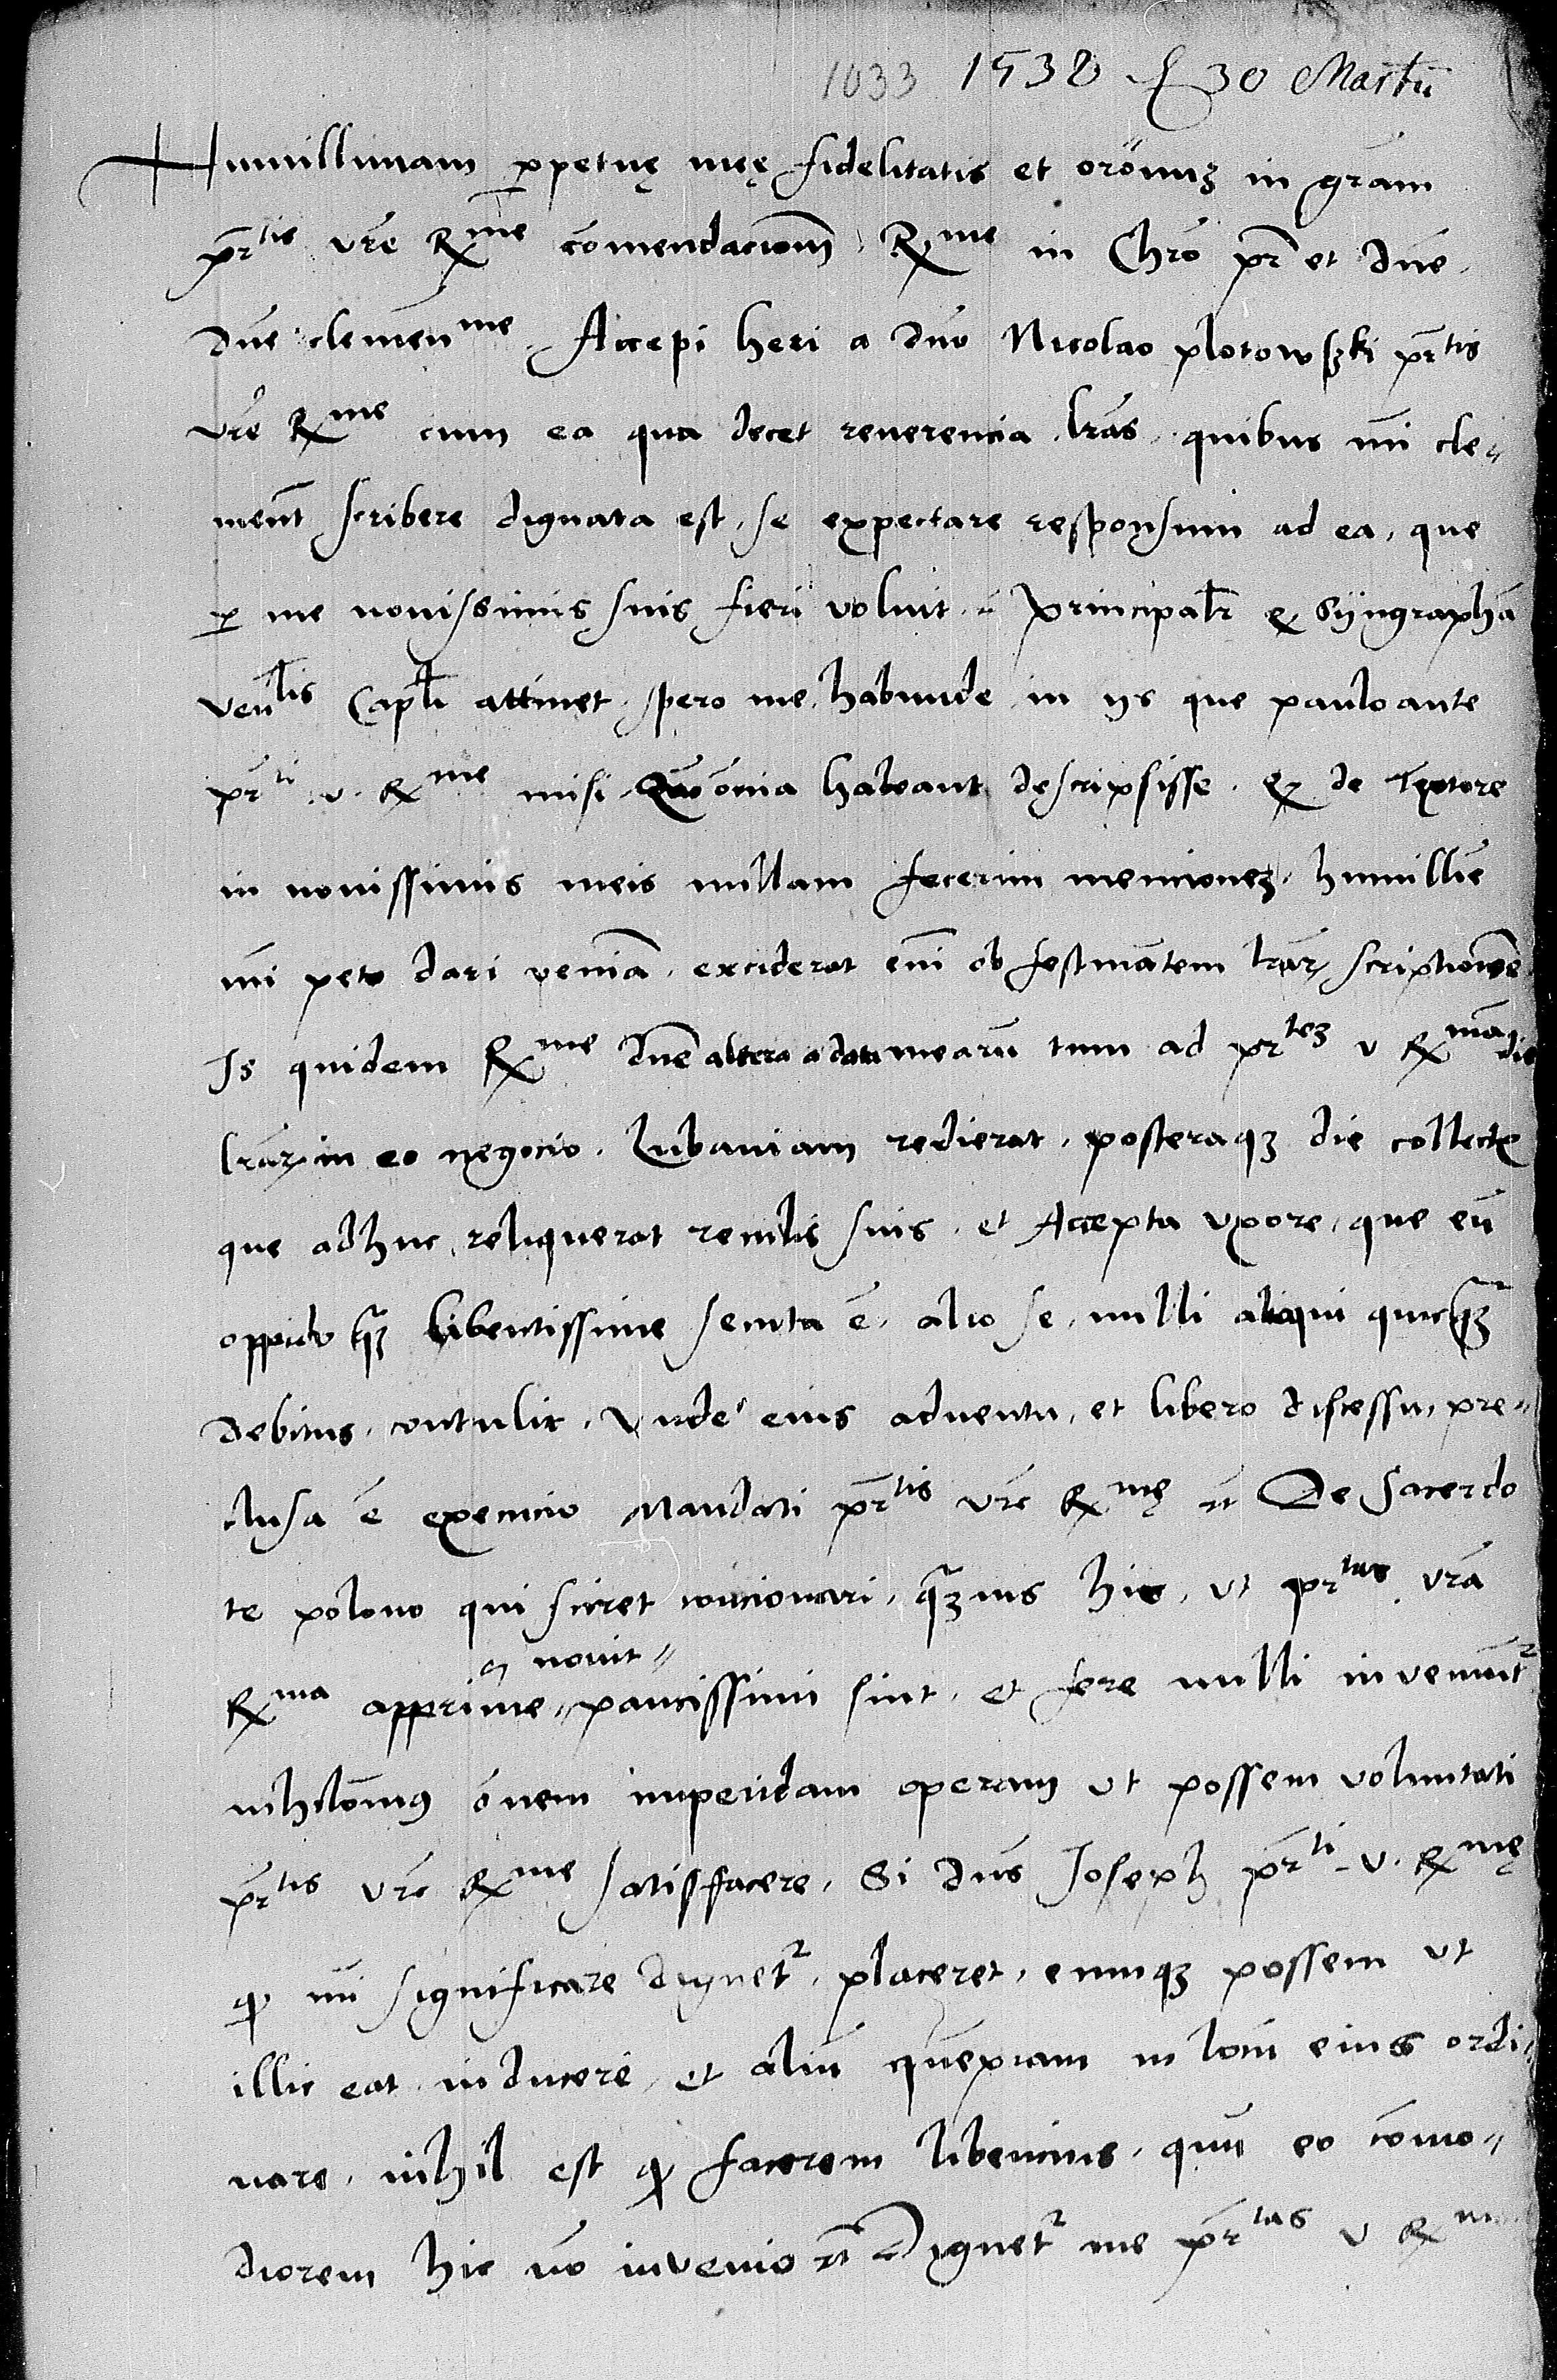 1033 1538 30 Martii
Humillimam ꝑpetuę meę fidelitatis et orõnuʒ in grãm
pr̃tis vrẽ Rme com̃endaciom̃. Rme in Chrõ pr̃ et dñe,
dñe clemen̄me. Accepi heri a dño Nicolao plotowskj pr̃tis
vrẽ Rme cum ea qua decet reuerencia lrãs, quibus mi cle-
ment̃ scribere dignata est, se expectare responsum ad ea, que
ꝑ me nouissimis suis fieri voluit. Principalr̃ Syngraphã
ven̄lis Capl̃i attinet, spero me habunde in ijs que pauloante
pr̃ti v. Rme misi, omĩa habeant descripsisse. de Textore
in nouissimis meis nullam fecerim mencioneʒ, humillĩe
mi peto dari veniã, exciderat em̃ ob festinãtem lrãrꝝ scriptionẽ
Is quidem Rme dñe altera a data mearũ tum ad pr̃teʒ v Rmã die
lrãrꝝ in eo negocio, Lubauiam redierat, posteraqʒ die collectis
que adhuc reliquerat reculis suis, et Accepta vxore, que eũ
oppido libentissime secuta ẽ, alio se, nulli alioqui quicqʒ
debitus, contulit, Vnde eius aduentu, et libero discessu, pre-
clusa ẽ execucio Mandati pr̃tis vrẽ Rmę De Sacerdo
te polono qui sciret concionari, qʒuis hic, vt pr̃tas vrã
nouit
Rma apprime, paucissimi sint, et fere nulli inveniunt̃
nihilomiꝰ õnem impendam operam vt possem voluntati
pr̃tis vrẽ Rme satisfacere, Si dñs Joseph pr̃ti v. Rmę
qꝫ mi significare dignet̃, placeret, eumqʒ possem vt
illic eat inducere, et aliũ quẽpiam in locũ eius ordi-
nare, nihil est qꝫ facerem libencius, quũ eo com̃o-
diorem hic nõ invenio Dignet̃ me pr̃tas v Rma